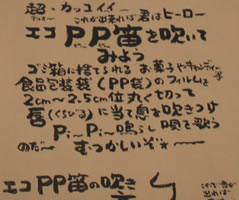 超・カッコイイー
これが出来れば 君はヒーロー
エコ PP笛を吹いて
みよう
ゴミ箱に捨てられる お菓子やキャンディー
食品包装袋(PP袋)のフィルムを
2cm〜2.5cm位 丸く切って
唇(くちびる)に当て息を吹きつけ
Pi〜Pi〜鳴らし 唄を歌う
のだ〜 むつかしいぞ☆〜
エコ PP笛の吹き
これで一番
出来れば